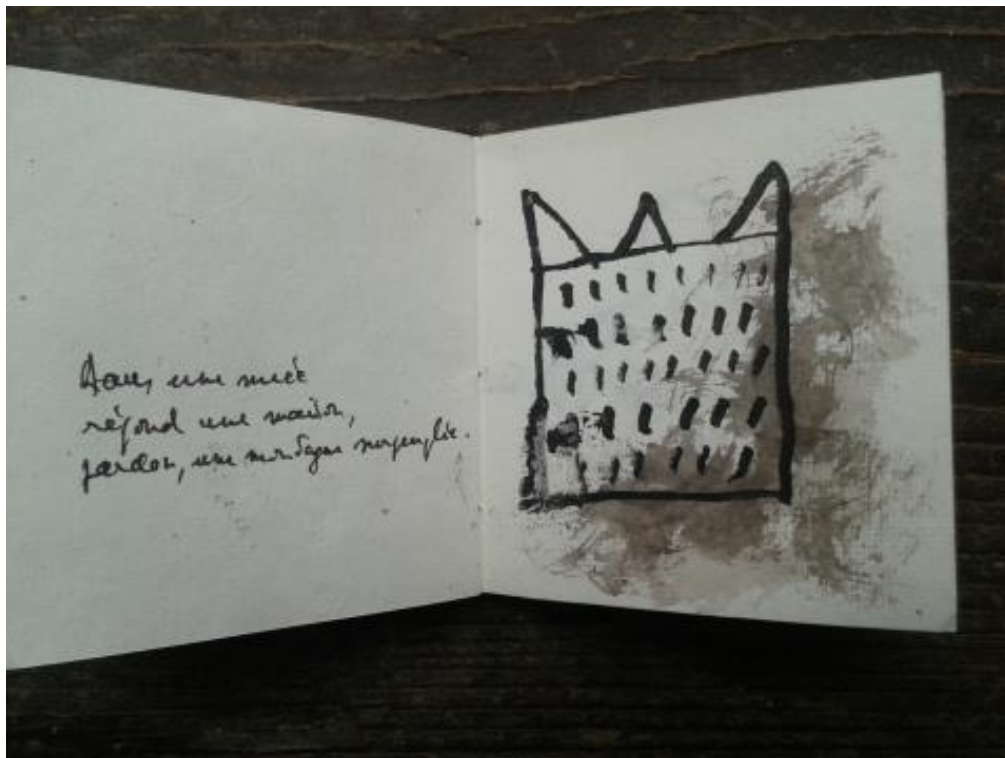 Dans une nuée
répond une maison,
pardon, une montagne surpeuplée.